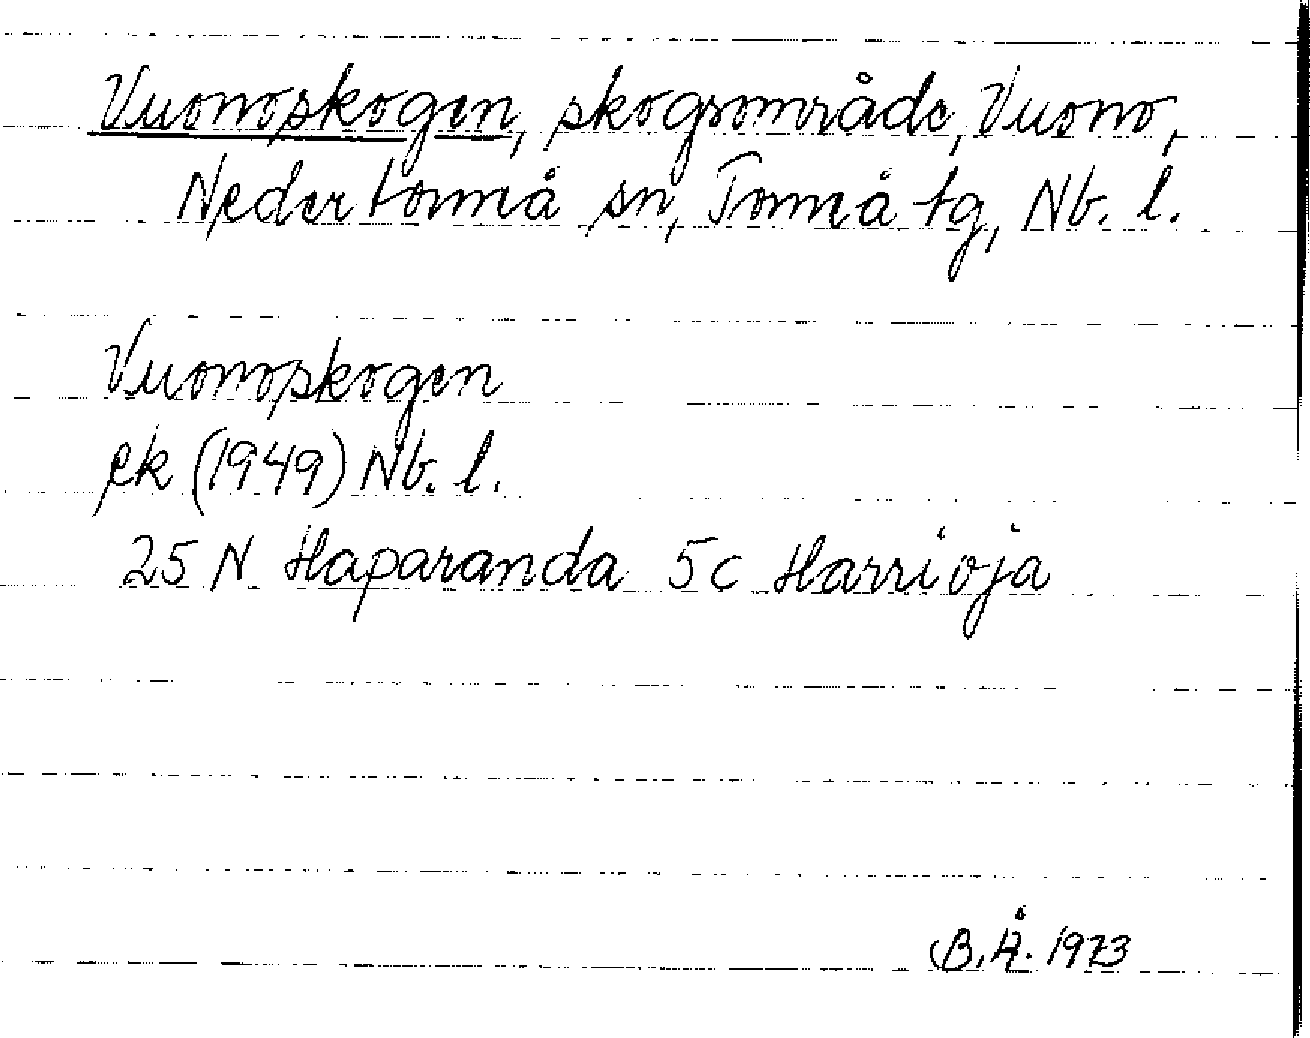 Vuonoskogen, skogsområde, Vuono,
Nedertorneå sn, Torneå tg, Nb. l.
Vuonoskogen
ek (1949) Nb. l.
25 N Haparanda 5c Harrioja
B.Å. 1973